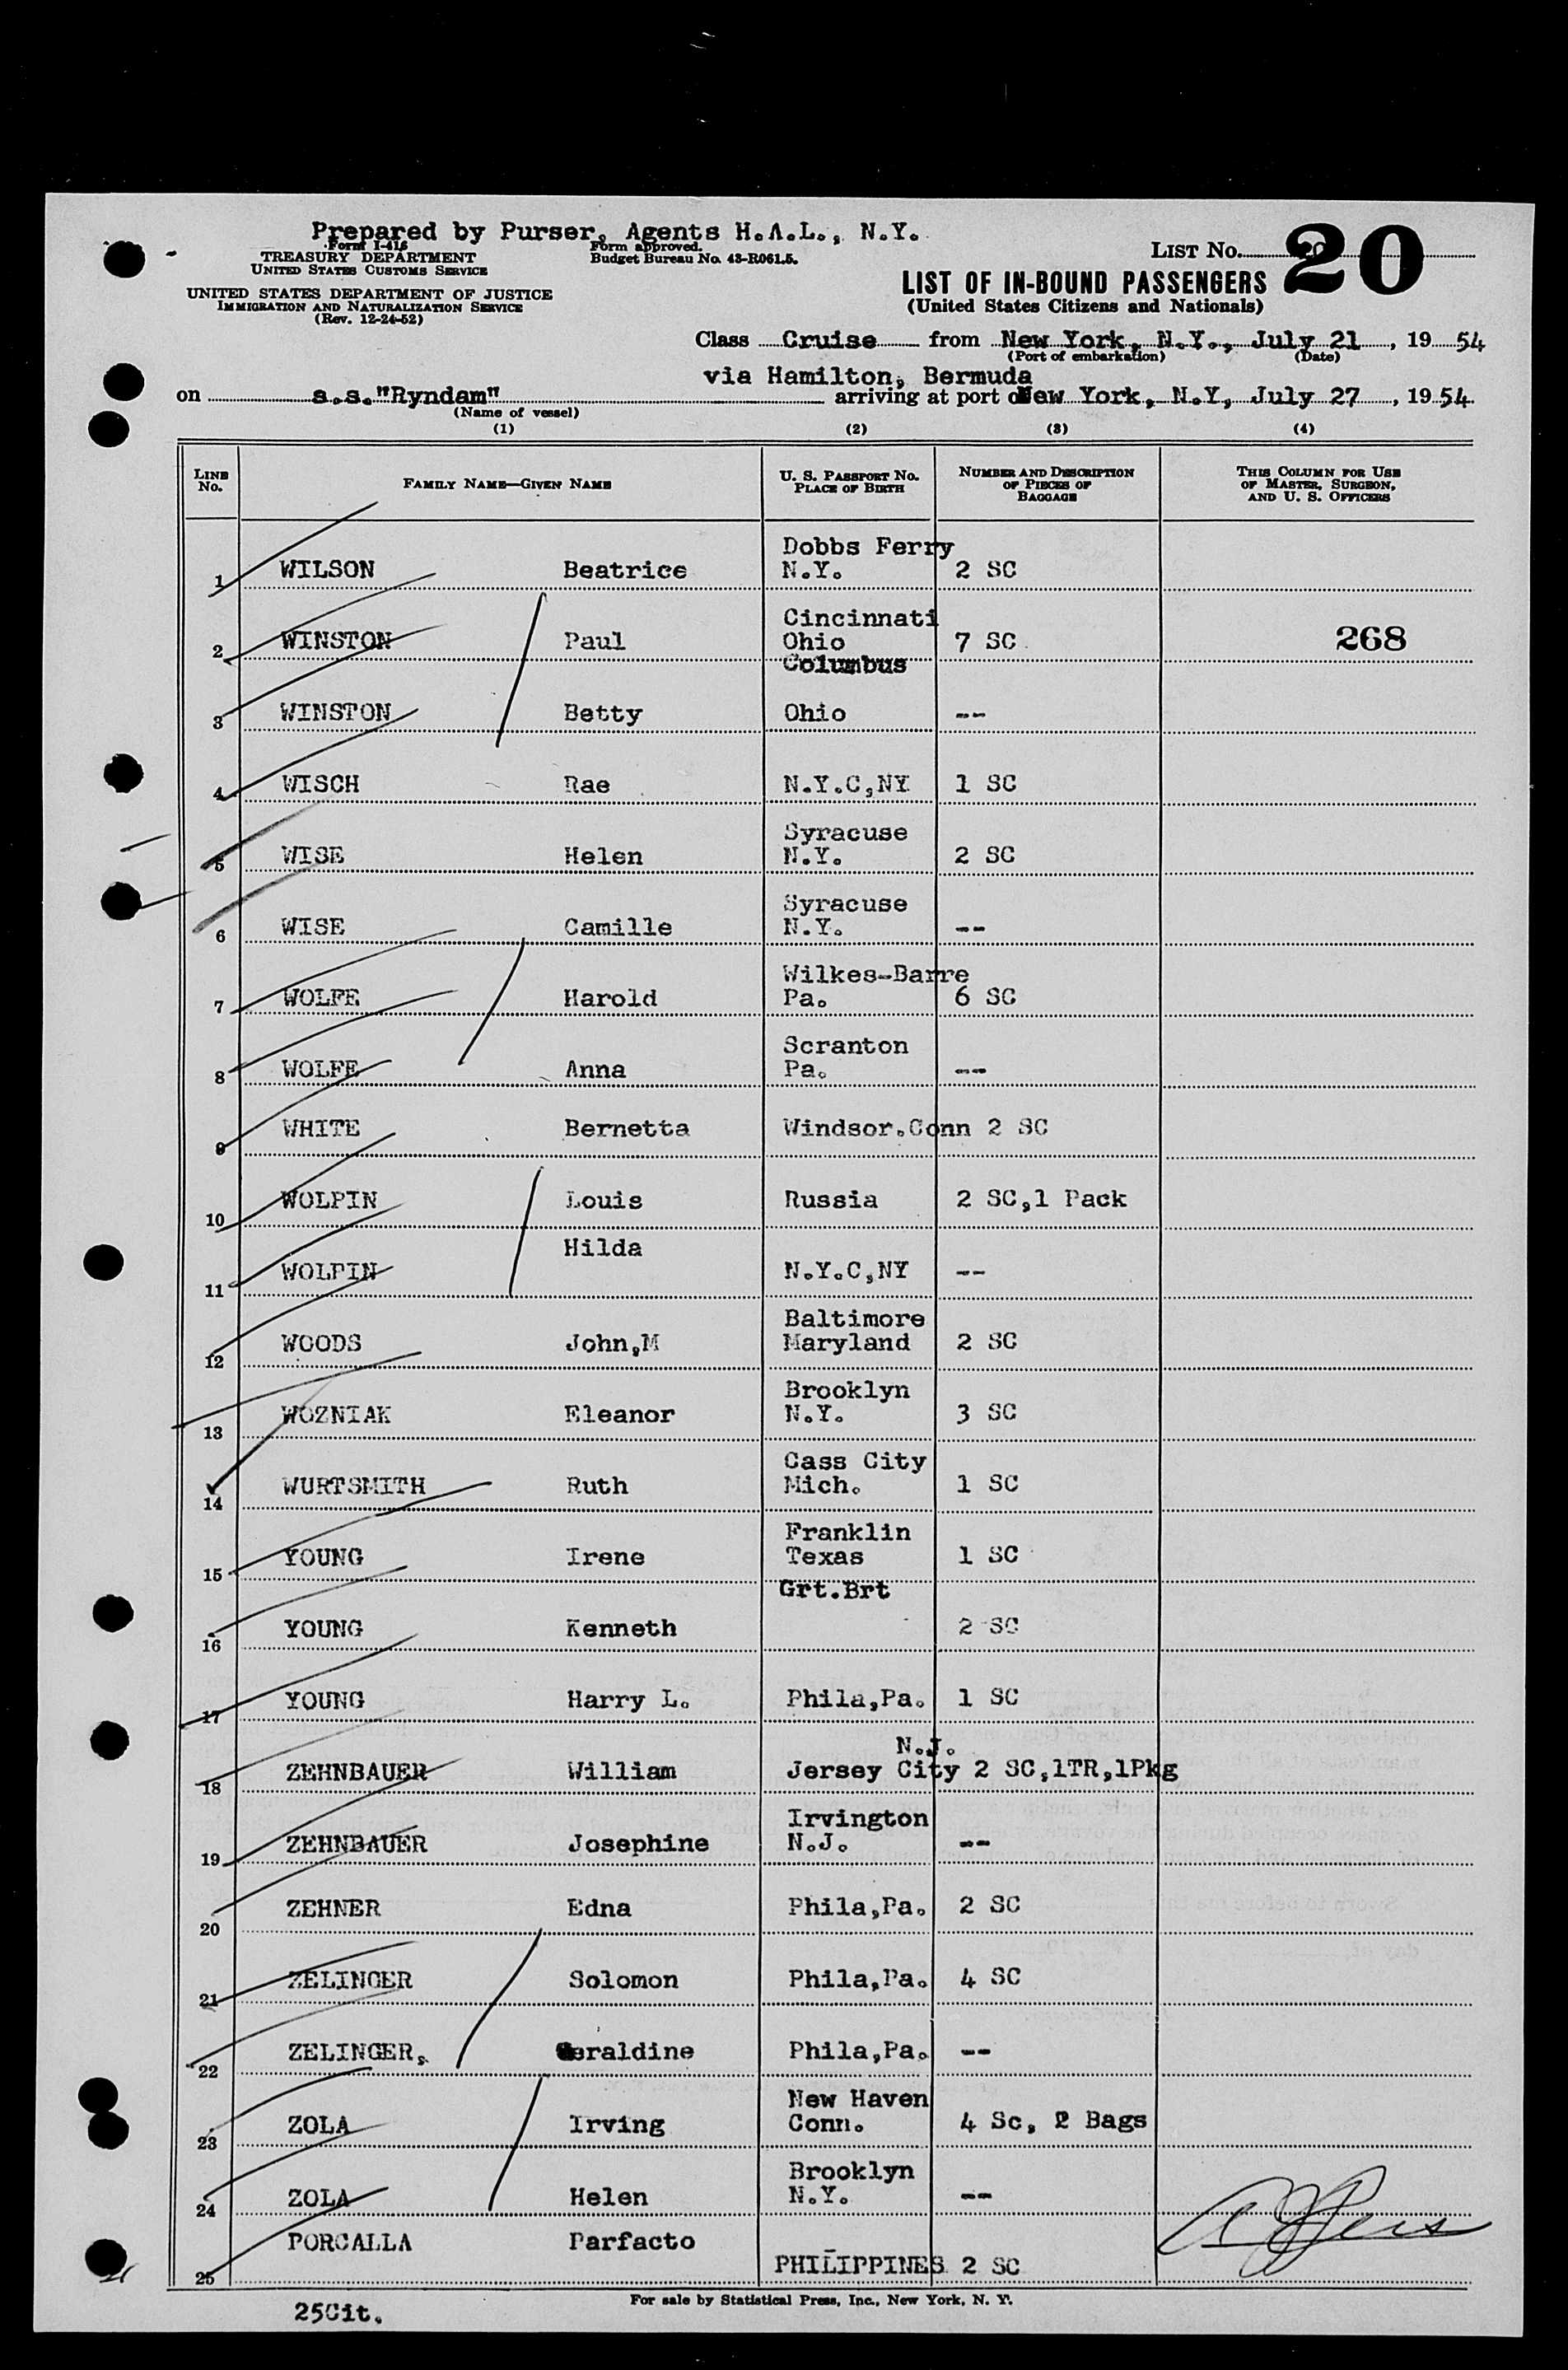 Prepared by Purser, Agents H.A.L., N.Y.
Form I-418
TREASURY DEPARTMENT
UNITED STATES CUSTOMS SERVICE
UNITED STATES DEPARTMENT OF JUSTICE
IMMIGRATION AND NATURALIZATION SERVICE
(Rev. 12-24-52)
Form approved.
Budget Bureau No. 43-R061.5.
LIST No. 20
LIST OF IN-BOUND PASSENGERS
(United States Citizens and Nationals)
Class Cruise from New York, N.Y., July 21, 19 54
(Port of embarkation) (Date)
via Hamilton, Bermuda
on s.s."Ryndam" arriving at port of New York, N.Y, July 27, 19 54.
(Name of vessel)
(1) (2) (3) (4)
LINE No. FAMILY NAME—GIVEN NAME U. S. PASSPORT No. PLACE OF BIRTH NUMBER AND DESCRIPTION OF PIECES OF BAGGAGE THIS COLUMN FOR USE OF MASTER, SURGEON, AND U. S. OFFICERS
1 WILSON Beatrice Dobbs Ferry N.Y. 2 SC
2 WINSTON Paul Cincinnati Ohio 7 SC 268
3 WINSTON Betty Columbus Ohio --
4 WISCH Rae N.Y.C,NY 1 SC
5 WISE Helen Syracuse N.Y. 2 SC
6 WISE Camille Syracuse N.Y. --
7 WOLFE Harold Wilkes-Barre Pa. 6 SC
8 WOLFE Anna Scranton Pa. --
9 WHITE Bernetta Windsor.Conn 2 SC
10 WOLPIN Louis Russia 2 SC,1 Pack
11 WOLPIN Hilda N.Y.C,NY --
12 WOODS John,M Baltimore Maryland 2 SC
13 WOZNIAK Eleanor Brooklyn N.Y. 3 SC
14 WURTSMITH Ruth Cass City Mich. 1 SC
15 YOUNG Irene Franklin Texas 1 SC
16 YOUNG Kenneth Grt.Brt 2 SC
17 YOUNG Harry L. Phila,Pa. 1 SC
18 ZEHNBAUER William Jersey City N.J. 2 SC,1TR,1Pkg
19 ZEHNBAUER Josephine Irvington N.J. --
20 ZEHNER Edna Phila,Pa. 2 SC
21 ZELINGER Solomon Phila,Pa. 4 SC
22 ZELINGER, Geraldine Phila,Pa. --
23 ZOLA Irving New Haven Conn. 4 Sc, 2 Bags
24 ZOLA Helen Brooklyn N.Y. --
25 PORCALLA Parfacto PHILIPPINES 2 SC
For sale by Statistical Press, Inc., New York, N. Y.
25Cit.